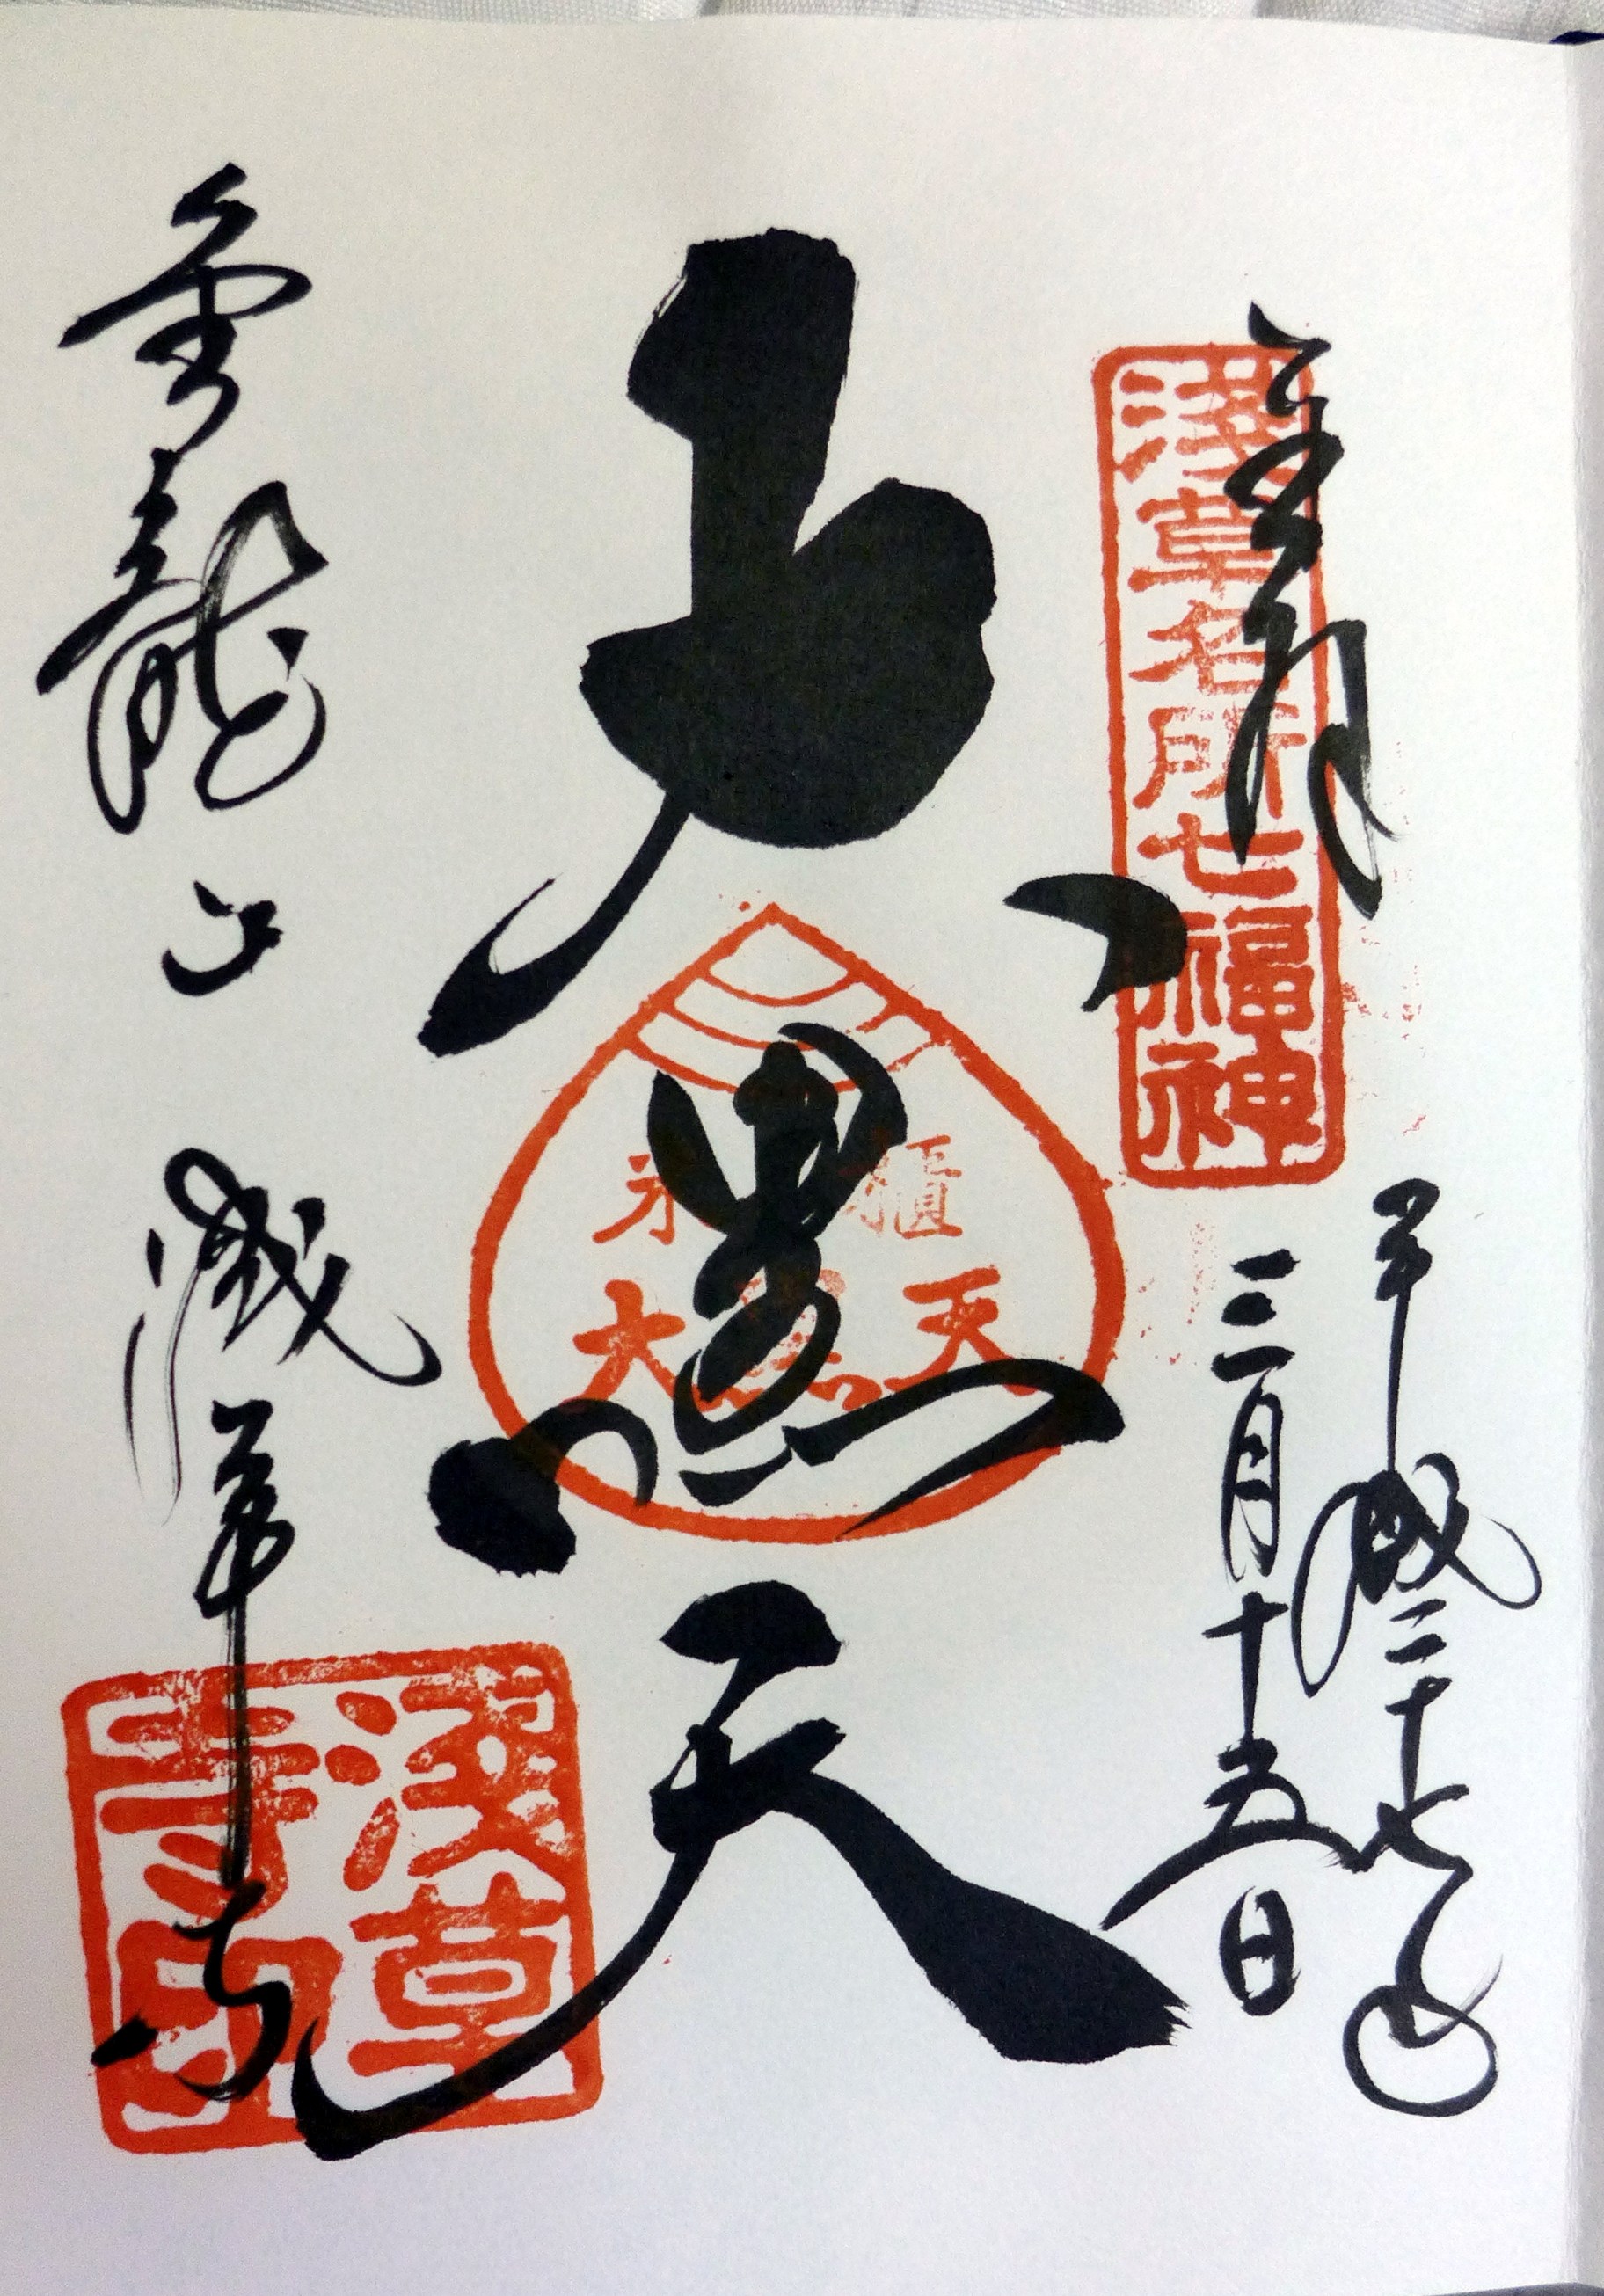 奉拝
淺草名所七福神
平成二十七年
三月十五日
大黒天
米櫃
大黒天
金龍山
浅草寺
淺草寺印